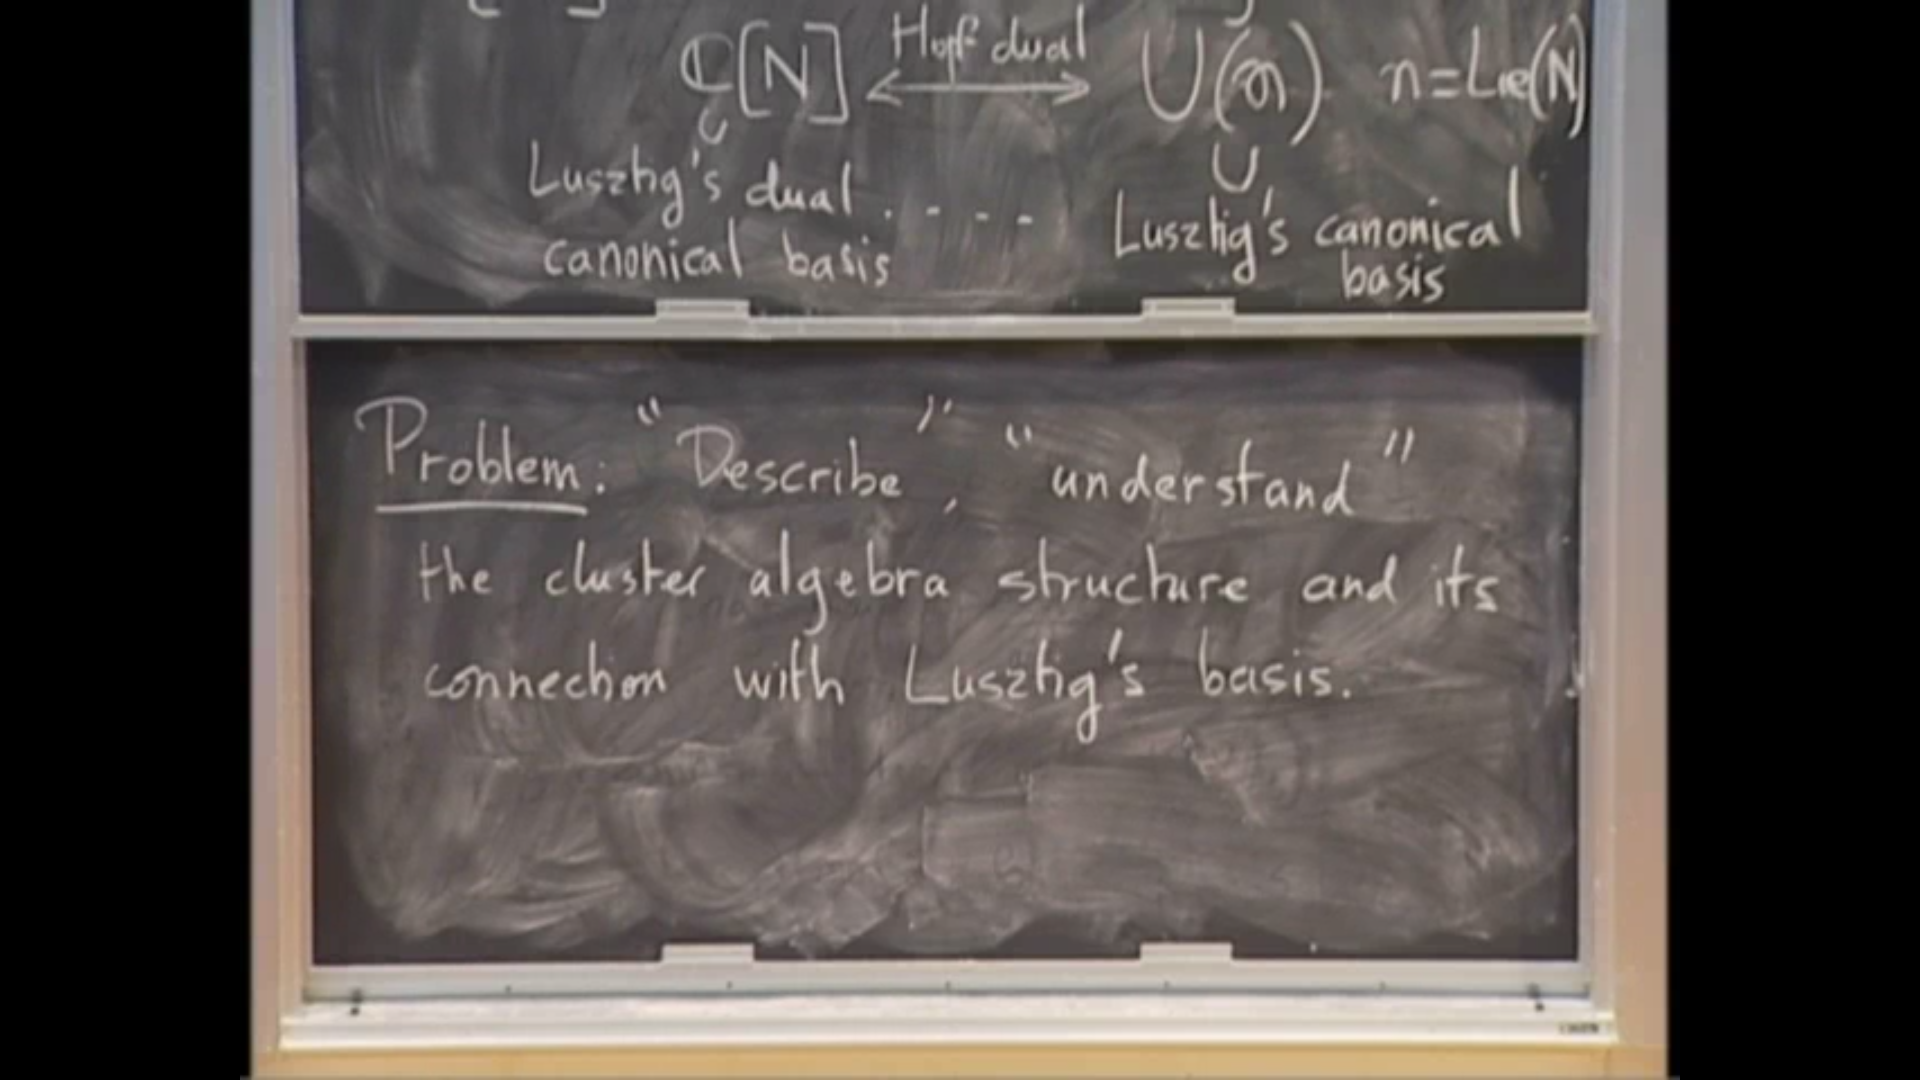 ℂ[N] Hopf dual U(n) n=Lie(N)
∪ ∪
Lusztig's dual .... Lusztig's canonical
canonical basis basis
Problem: "Describe", "understand"
the cluster algebra structure and its
connection with Lusztig's basis.